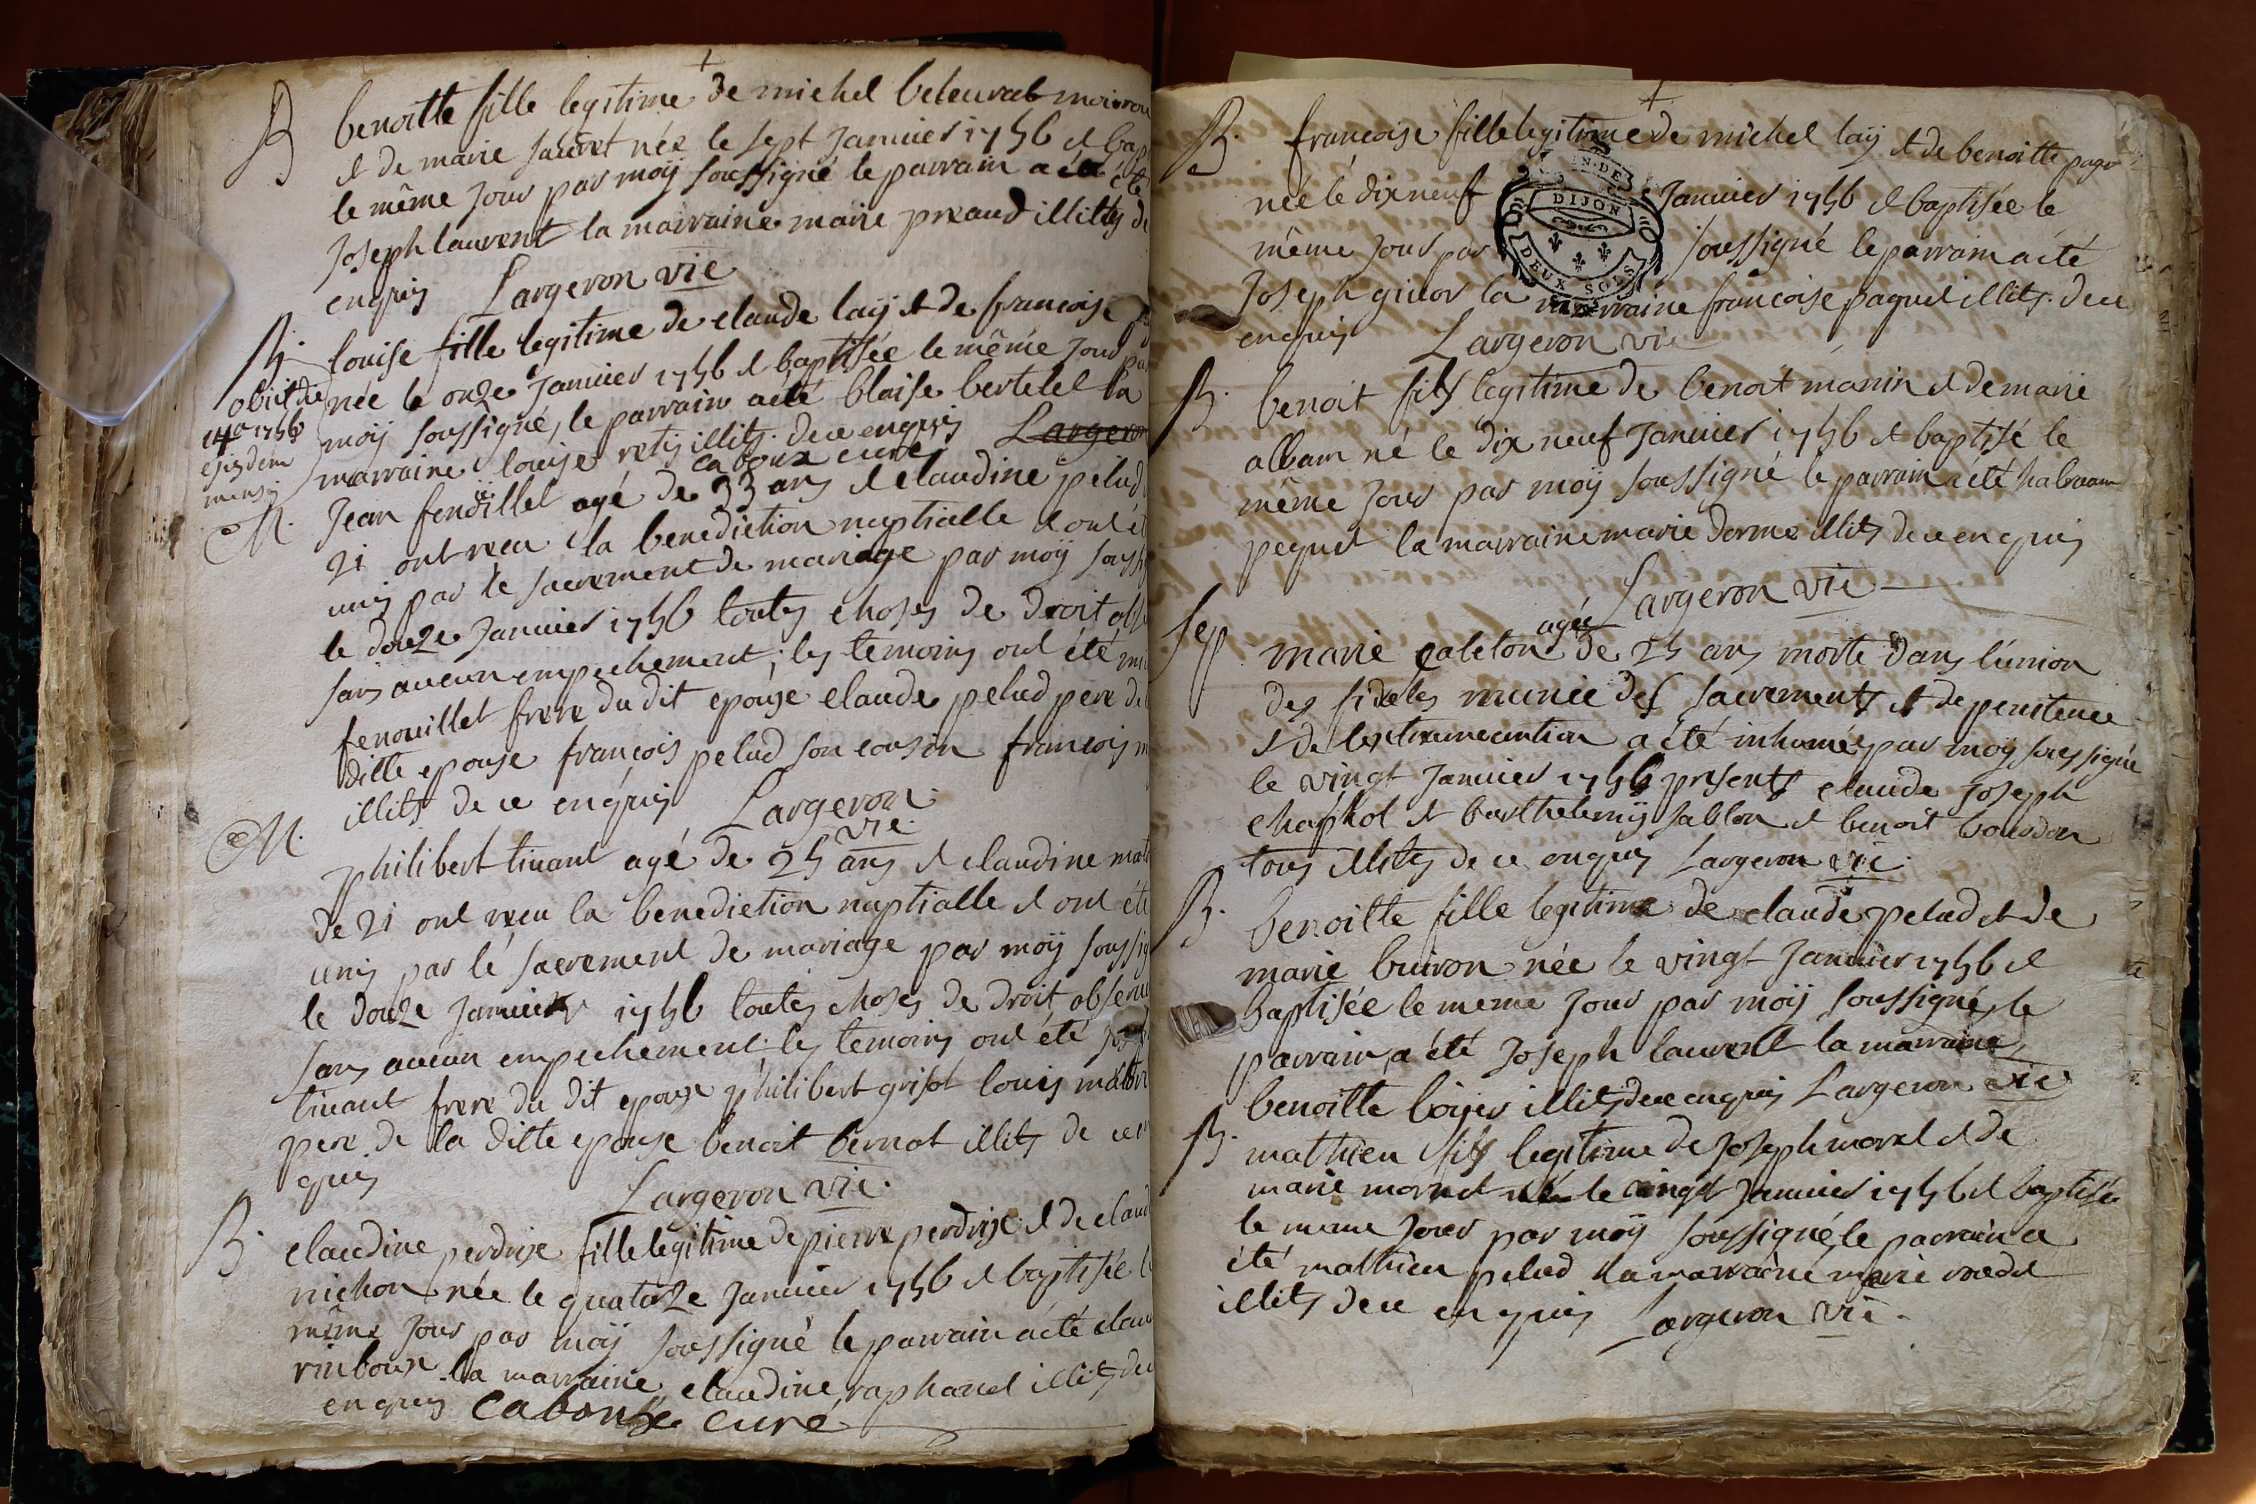 +
B benoitte fille legitime de michel beleurat
et de marie sauret née le sept Januier 1756 et bap
le même Jour par moÿ soussigné le parrain a été
Joseph laurent la marraine marie preaud illits de
enquis Largeron vic
B. louise fille legitime de claude laÿ et de francoise
née le onze Januier 1756 et baptisée le même Jour par
obiit die
14a 1756
ejusdem
mensis
moÿ soussigné, le parrain a été blaise bertelet la
marraine louise retis illits. de ce enquis Largeron
caboux curé
M. Jean fenoüillet agé de 33 ans et claudine pelud
21 ont reçu la benediction nuptialle et ont ét
unis par le sacrement de mariage par moÿ soussi
le douze Januier 1756 toutes choses de droit obse
sans aucun empechement; les temoins ont été
fenouillet frere du dit epouse claude pelud pere de
ditte epouse francois pelud son cousin francois
illits de ce enquis Largeron
vic.
M. philibert tiuant agé de 25 ans et claudine mat
de 21 ont reçu la benediction nuptialle et ont éte
unis par le sacrement de mariage par moÿ soussig
le douze Januier 1756 toutes choses de droit obseru
sans aucun empechement les temoins ont été
tiuant frere du dit epouse philibert grisot louis
pere de la ditte epouse benoit bernot illits de ce en
quis
Largeron vic.
B. claudine perdrise fille legitime de pierre perdrise et de claud
nichon née le quatorze Januier 1756 et baptisée l
même Jour par moÿ soussigné le parrain a été clau
rinboux la marraine claudine raphanel illits de ce
enquis caboux curé
+
B. francoise fille legitime de michel laÿ et de benoitte
née le dix neuf Januier 1756 et baptisée le
DIJON
DEUX SOLS
même Jour par soussigné le parrain a été
Joseph giuor la marraine francoise paquet illits. de ce
enquis Largeron vic
B. benoit fils legitime de benoit manin et de marie
alban né le dix neuf Januier 1756 et baptisé le
même Jour par moÿ soussigné le parrain a été
pequet la marraine marie dorme illits de ce enquis
Largeron vic
Sep marie galeton agée de 25 ans morte dans l'union
des fideles munie des sacrements et de penitence
et de l'extremeonction a été inhumée par moÿ soussigné
le vingt Januier 1756 presents claude Joseph
chaphot et barthelemÿ sablon et benoit bourdon
tous illits de ce enquis Largeron vic.
B. benoitte fille legitime de claude pelud et de
marie buiron née le vingt Januier 1756 et
baptisée le meme Jour par moÿ soussigné, le
parrain a été Joseph laurent la marraine
benoitte boÿer illits de ce enquis Largeron vic
B. mathieu fils legitime de Joseph morel et de
marie mornet né le vingt Januier 1756 et baptisée
le meme Jour par moÿ soussigné, le parrain a
été mathieu pelud la marraine marie
illits de ce enquis Largeron vic.